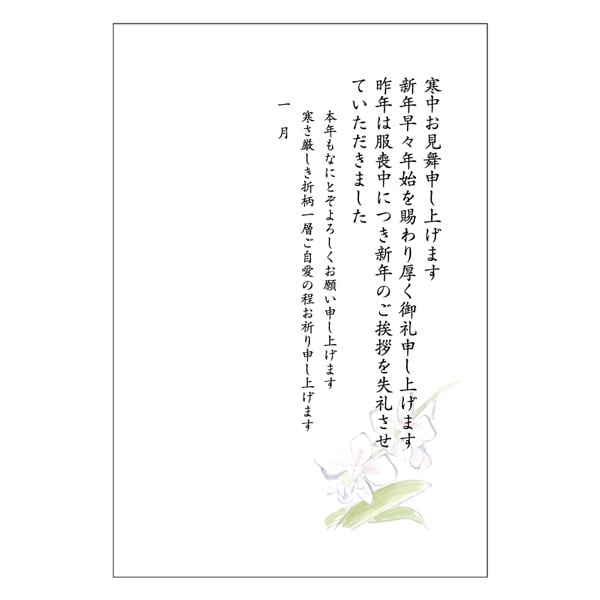 寒中お見舞申し上げます
新年早々年始を賜わり厚く御礼申し上げます
昨年は服喪中につき新年のご挨拶を失礼させ
ていただきました
本年もなにとぞよろしくお願い申し上げます
寒さ厳しき折柄一層ご自愛の程お祈り申し上げます
一月